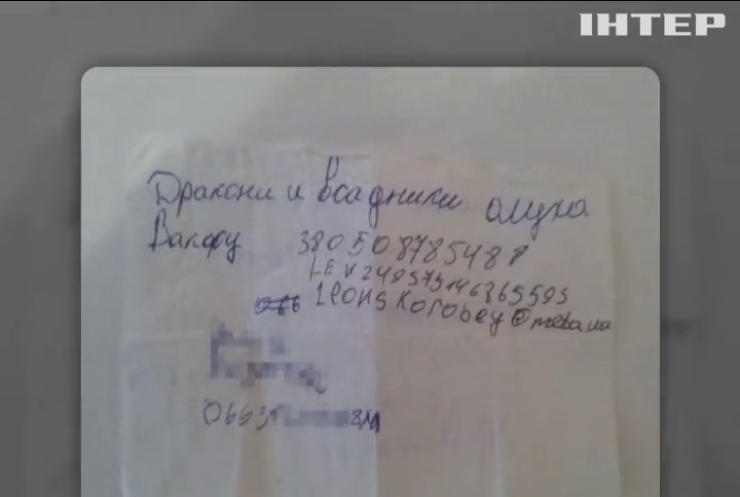 ІНТЕР
Дракони и всадники олуха
Вакфу 380508785488
LEV249575146865595
066 leonskorobey@meta.ua
0663